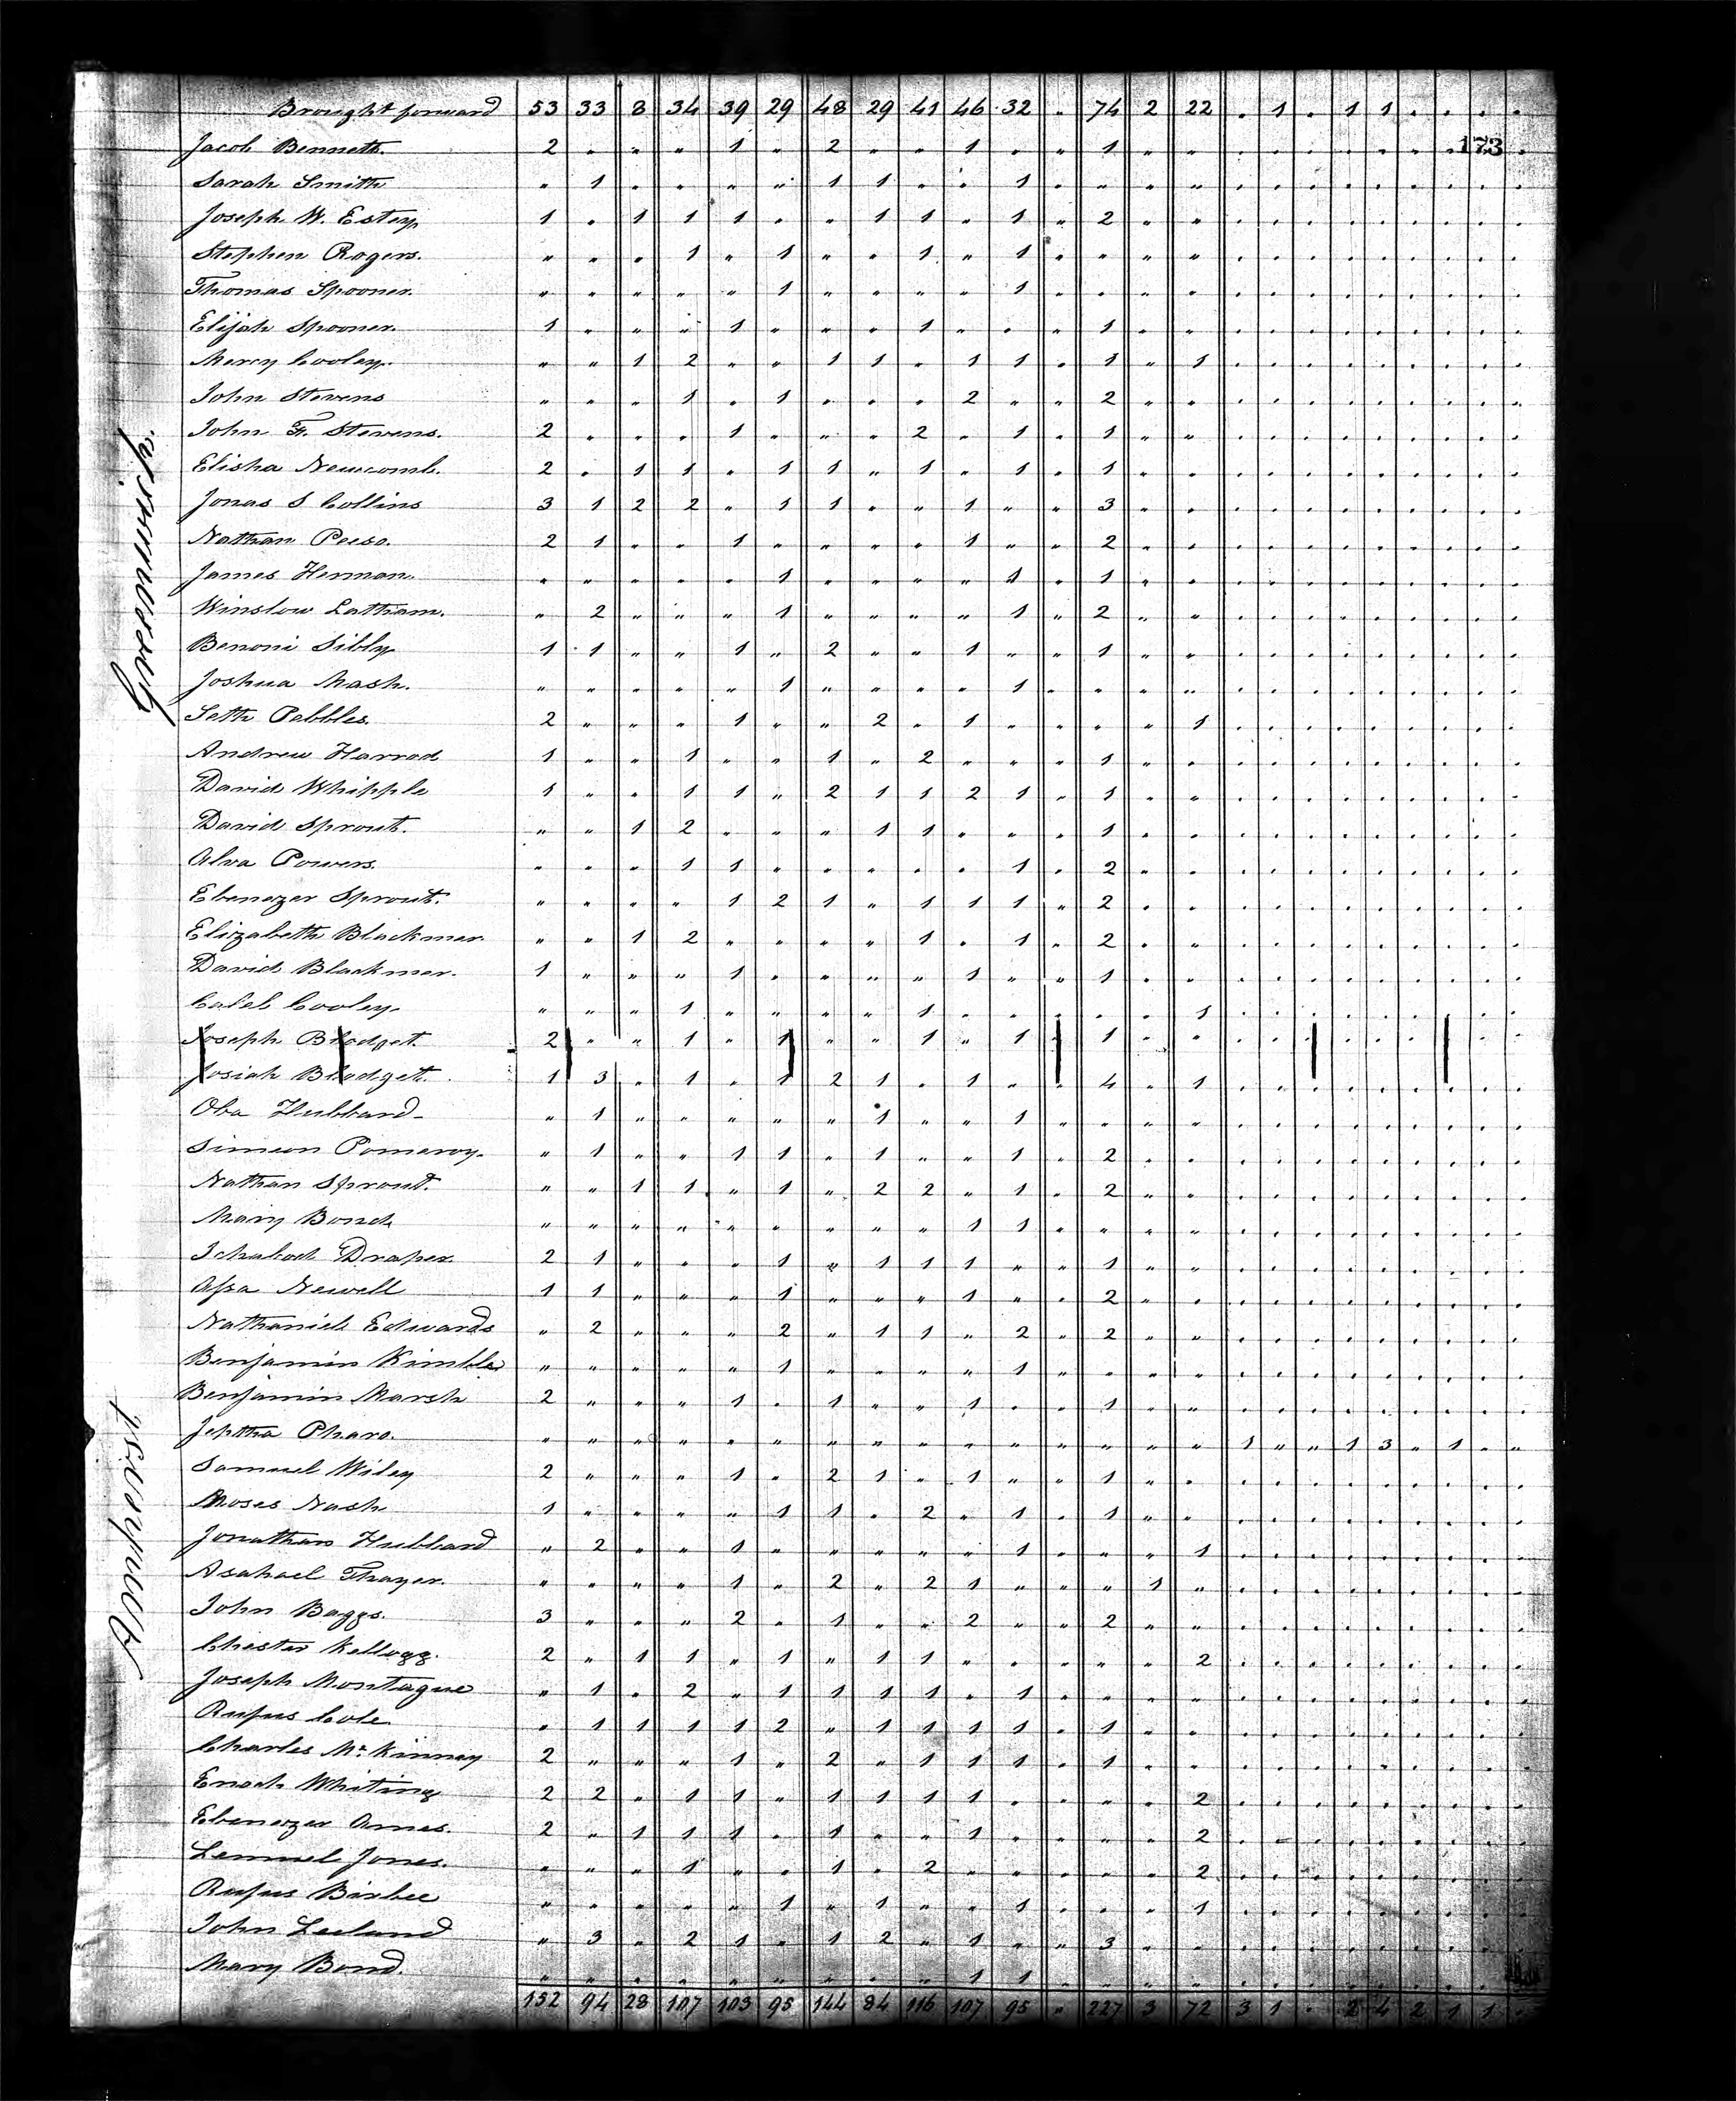 Brought forward 53 33 8 34 39 29 48 29 41 46 32 " 74 2 22 . 1 . 1 1 . . . .
173
Jacob Bennett. 2 " " " 1 " 2 " " 1 " " 1 " "
Sarah Smith " 1 " " " " 1 1 " " 1 " " " "
Joseph W. Estey 1 " 1 1 1 " " 1 1 " 1 " 2 " "
Stephen Rogers. " " " 1 " 1 " " 1 " 1 " " " "
Thomas Spooner. " " " " " 1 " " " " 1 " " " "
Elijah Spooner. 1 " " " 1 " " " 1 " " " 1 " "
Mercy Cooley. " " 1 2 " " 1 1 " 1 1 " 1 " 1
John Stevens " " " 1 " 1 " " " 2 " " 2 " "
John F. Stevens. 2 " " " 1 " " " 2 " 1 " 1 " "
Elisha Newcomb. 2 " 1 1 " 1 1 " 1 " 1 " 1 " "
Jonas S Collins 3 1 2 2 " 1 1 " " 1 " " 3 " "
Nathan Peeso. 2 1 " " 1 " " " " 1 " " 2 " "
James Henman. " " " " " 1 " " " " 1 " 1 " "
Winslow Latham. " 2 " " " 1 " " " " 1 " 2 " "
Benoni Sibly 1 1 " " 1 " 2 " " 1 " " 1 " "
Joshua Nash. " " " " " 1 " " " " 1 " " " "
Seth Pebbles. 2 " " " 1 " " 2 " 1 " " " " 1
Andrew Harrod 1 " " 1 " " 1 " 2 " " " 1 " "
David Whipple 1 " " 1 1 " 2 1 1 2 1 " 1 " "
David Sprout. " " 1 2 " " " 1 1 " " " 1 " "
Alva Powers. " " " 1 1 " " " " " 1 " 2 " "
Ebenezer Sprout. " " " " 1 2 1 " 1 1 1 " 2 " "
Elizabeth Blackmer. " " 1 2 " " " " 1 " 1 " 2 " "
David Blackmer. 1 " " " 1 " " " " 1 " " 1 " "
Calel Cooley. " " " 1 " " " " 1 " " " " " 1
Joseph Blodget. 2 " " 1 " 1 " " 1 " 1 " 1 " "
Josiah Blodget. 1 3 " 1 " 1 2 1 " 1 " " 4 " 1
Oba Hubbard " 1 " " " " " 1 " " 1 " " " "
Simeon Pomeroy. " 1 " " 1 1 " 1 " " 1 " 2 " "
Nathan Sprout. " " 1 1 " 1 " 2 2 " 1 " 2 " "
Mary Bond " " " " " " " " " 1 1 " " " "
Ichabod Draper. 2 1 " " " 1 " 1 1 1 " " 1 " "
Asa Newell 1 1 " " " 1 " " " 1 " " 2 " "
Nathaniel Edwards " 2 " " " 2 " 1 1 " 2 " 2 " "
Benjamin Kimble " " " " " 1 " " " " 1 " " " "
Benjamin Marsh 2 " " " 1 " 1 " " 1 " " 1 " "
Jeptha Pharo. " " " " " " " " " " " " " " " 1 " " 1 3 " 1 " "
Samuel Wiley 2 " " " 1 " 2 1 " 1 " " 1 " "
Moses Nash 1 " " " " 1 1 " 2 " 1 " 1 " "
Jonathan Hubbard " 2 " " 1 " " " " " 1 " " " 1
Asahael Thayer. " " " " 1 " 2 " 2 1 " " " 1 "
John Baggs. 3 " " " 2 " 1 " " 2 " " 2 " "
Chester Kellogg. 2 " 1 1 " 1 " 1 1 " " " " " 2
Joseph Montague " 1 " 2 " 1 1 1 1 " 1 " " " "
Rufus Cole " 1 1 1 1 2 " 1 1 1 1 " 1 " "
Charles McKinney 2 " " " 1 " 2 " 1 1 1 " 1 " "
Enoch Whiting 2 2 " 1 1 " 1 1 1 1 " " " " 2
Ebenezer Ames. 2 " 1 1 1 " 1 " " 1 " " " " 2
Lemuel Jones. " " " 1 " " 1 " 2 " " " " " 2
Rufus Bixbee " " " " " 1 " 1 " " 1 " " " 1
John Leeland " 3 " 2 1 " 1 2 " 1 " " 3 " "
Mary Bond. " " " " " " " " " 1 1 " " " "
152 94 28 107 103 95 144 84 116 107 95 " 227 3 72 3 1 . 2 4 2 1 1 .
Greenwich.
Hampshire